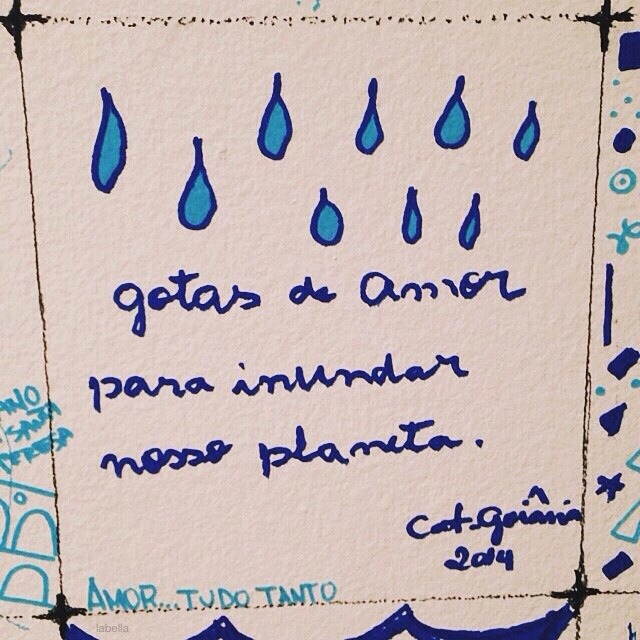 gotas de amor
para inundar
nosso planeta.
Cat-Goiânia
2014
AMOR...TUDO TANTO
labella